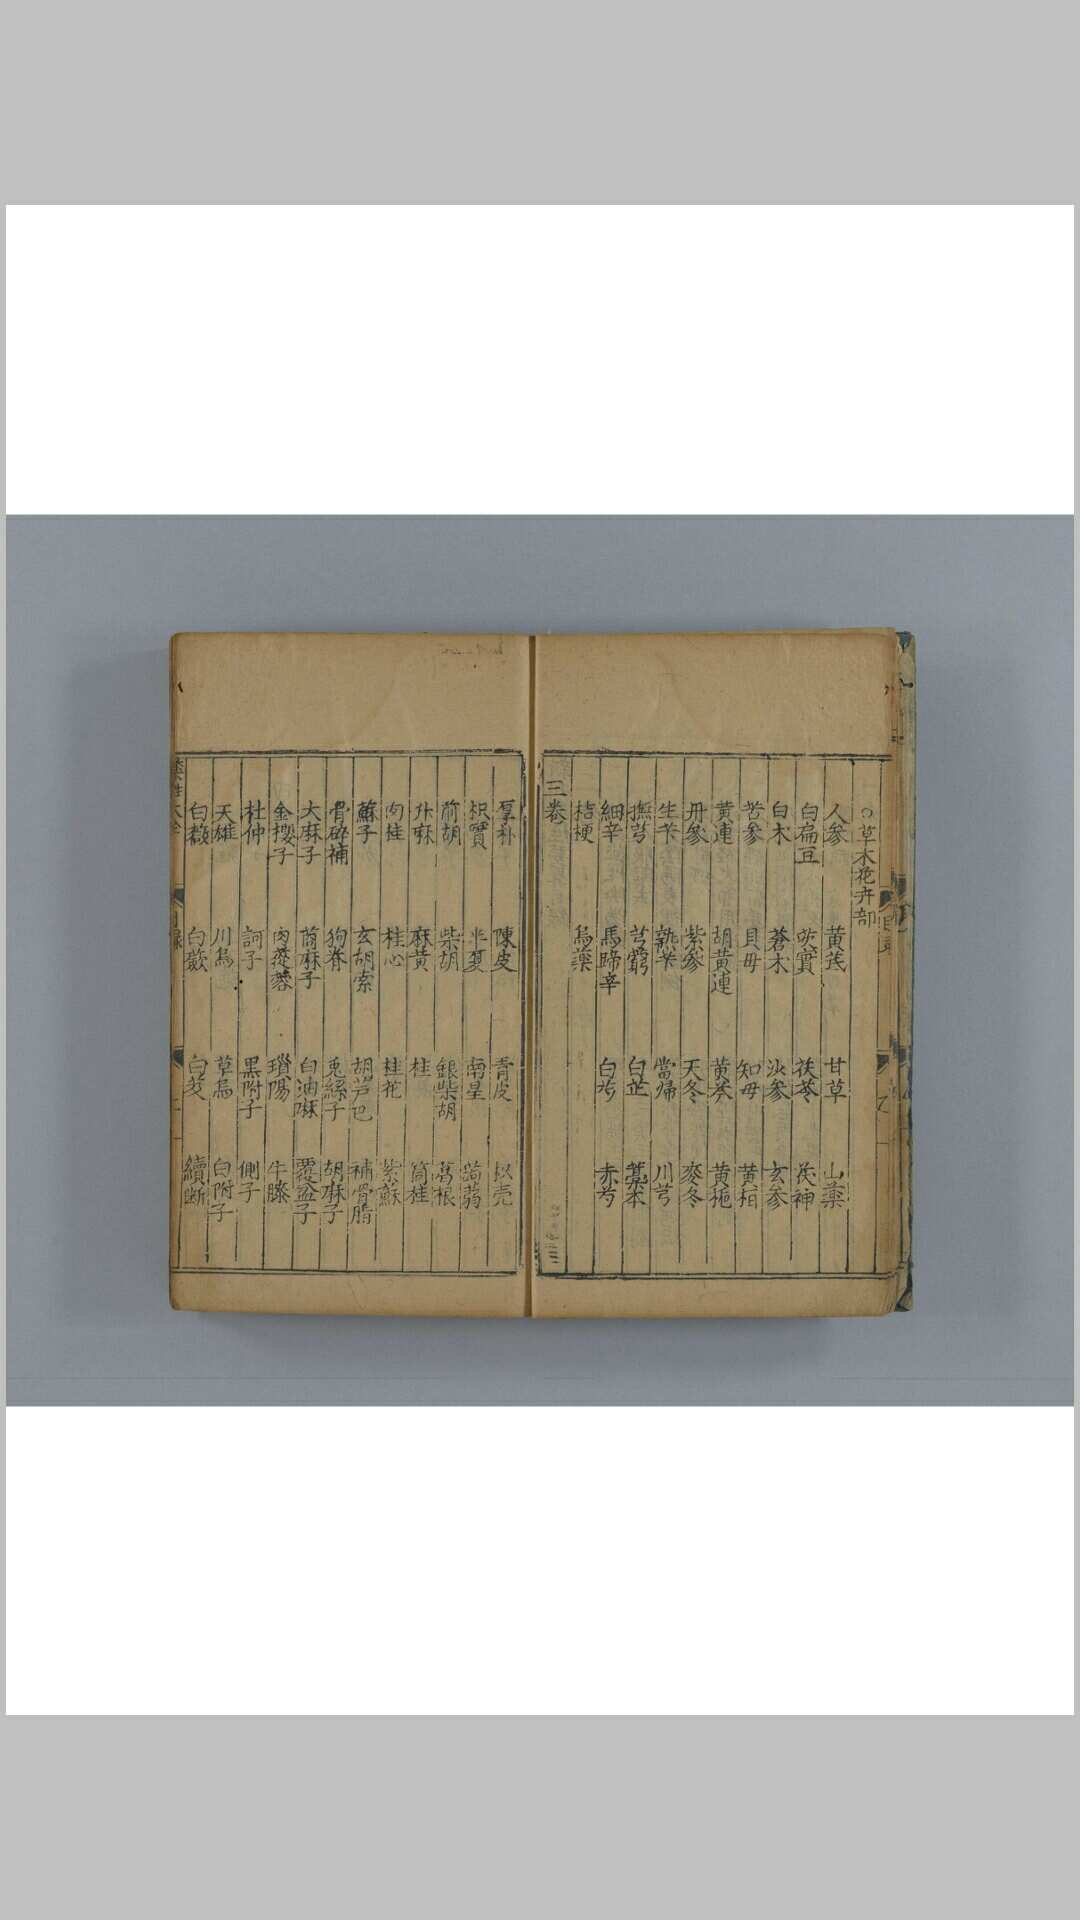 ○草木花卉部
人參 黃芪 甘草 山藥
白扁豆 茨實 茯苓 茯神
白木 蒼木 沙參 玄參
苦參 貝母 知母 黃柏
黃連 胡黃連 黃芩 黃梔
丹參 紫參 天冬 麥冬
生芐 熟芐 當歸 川芎
撫芎 芎藭 白芷 藁本
細辛 馬蹄辛 白芍 赤芍
桔梗 烏藥
三卷
厚朴 陳皮 青皮 枳壳
枳實 半夏 南星 蒟蒻
前胡 柴胡 銀柴胡 葛根
升麻 麻黃 桂 筒桂
肉桂 桂心 桂花 紫蘇
蘇子 玄胡索 胡芦巴 補骨脂
骨碎補 狗脊 兎絲子 胡麻子
大麻子 萆麻子 白油麻 覆盆子
金櫻子 肉蓯蓉 瑣陽 牛膝
杜仲 訶子 黑附子 側子
天雄 川烏 草烏 白附子
白薇 白蘞 白芨 續斷
目錄